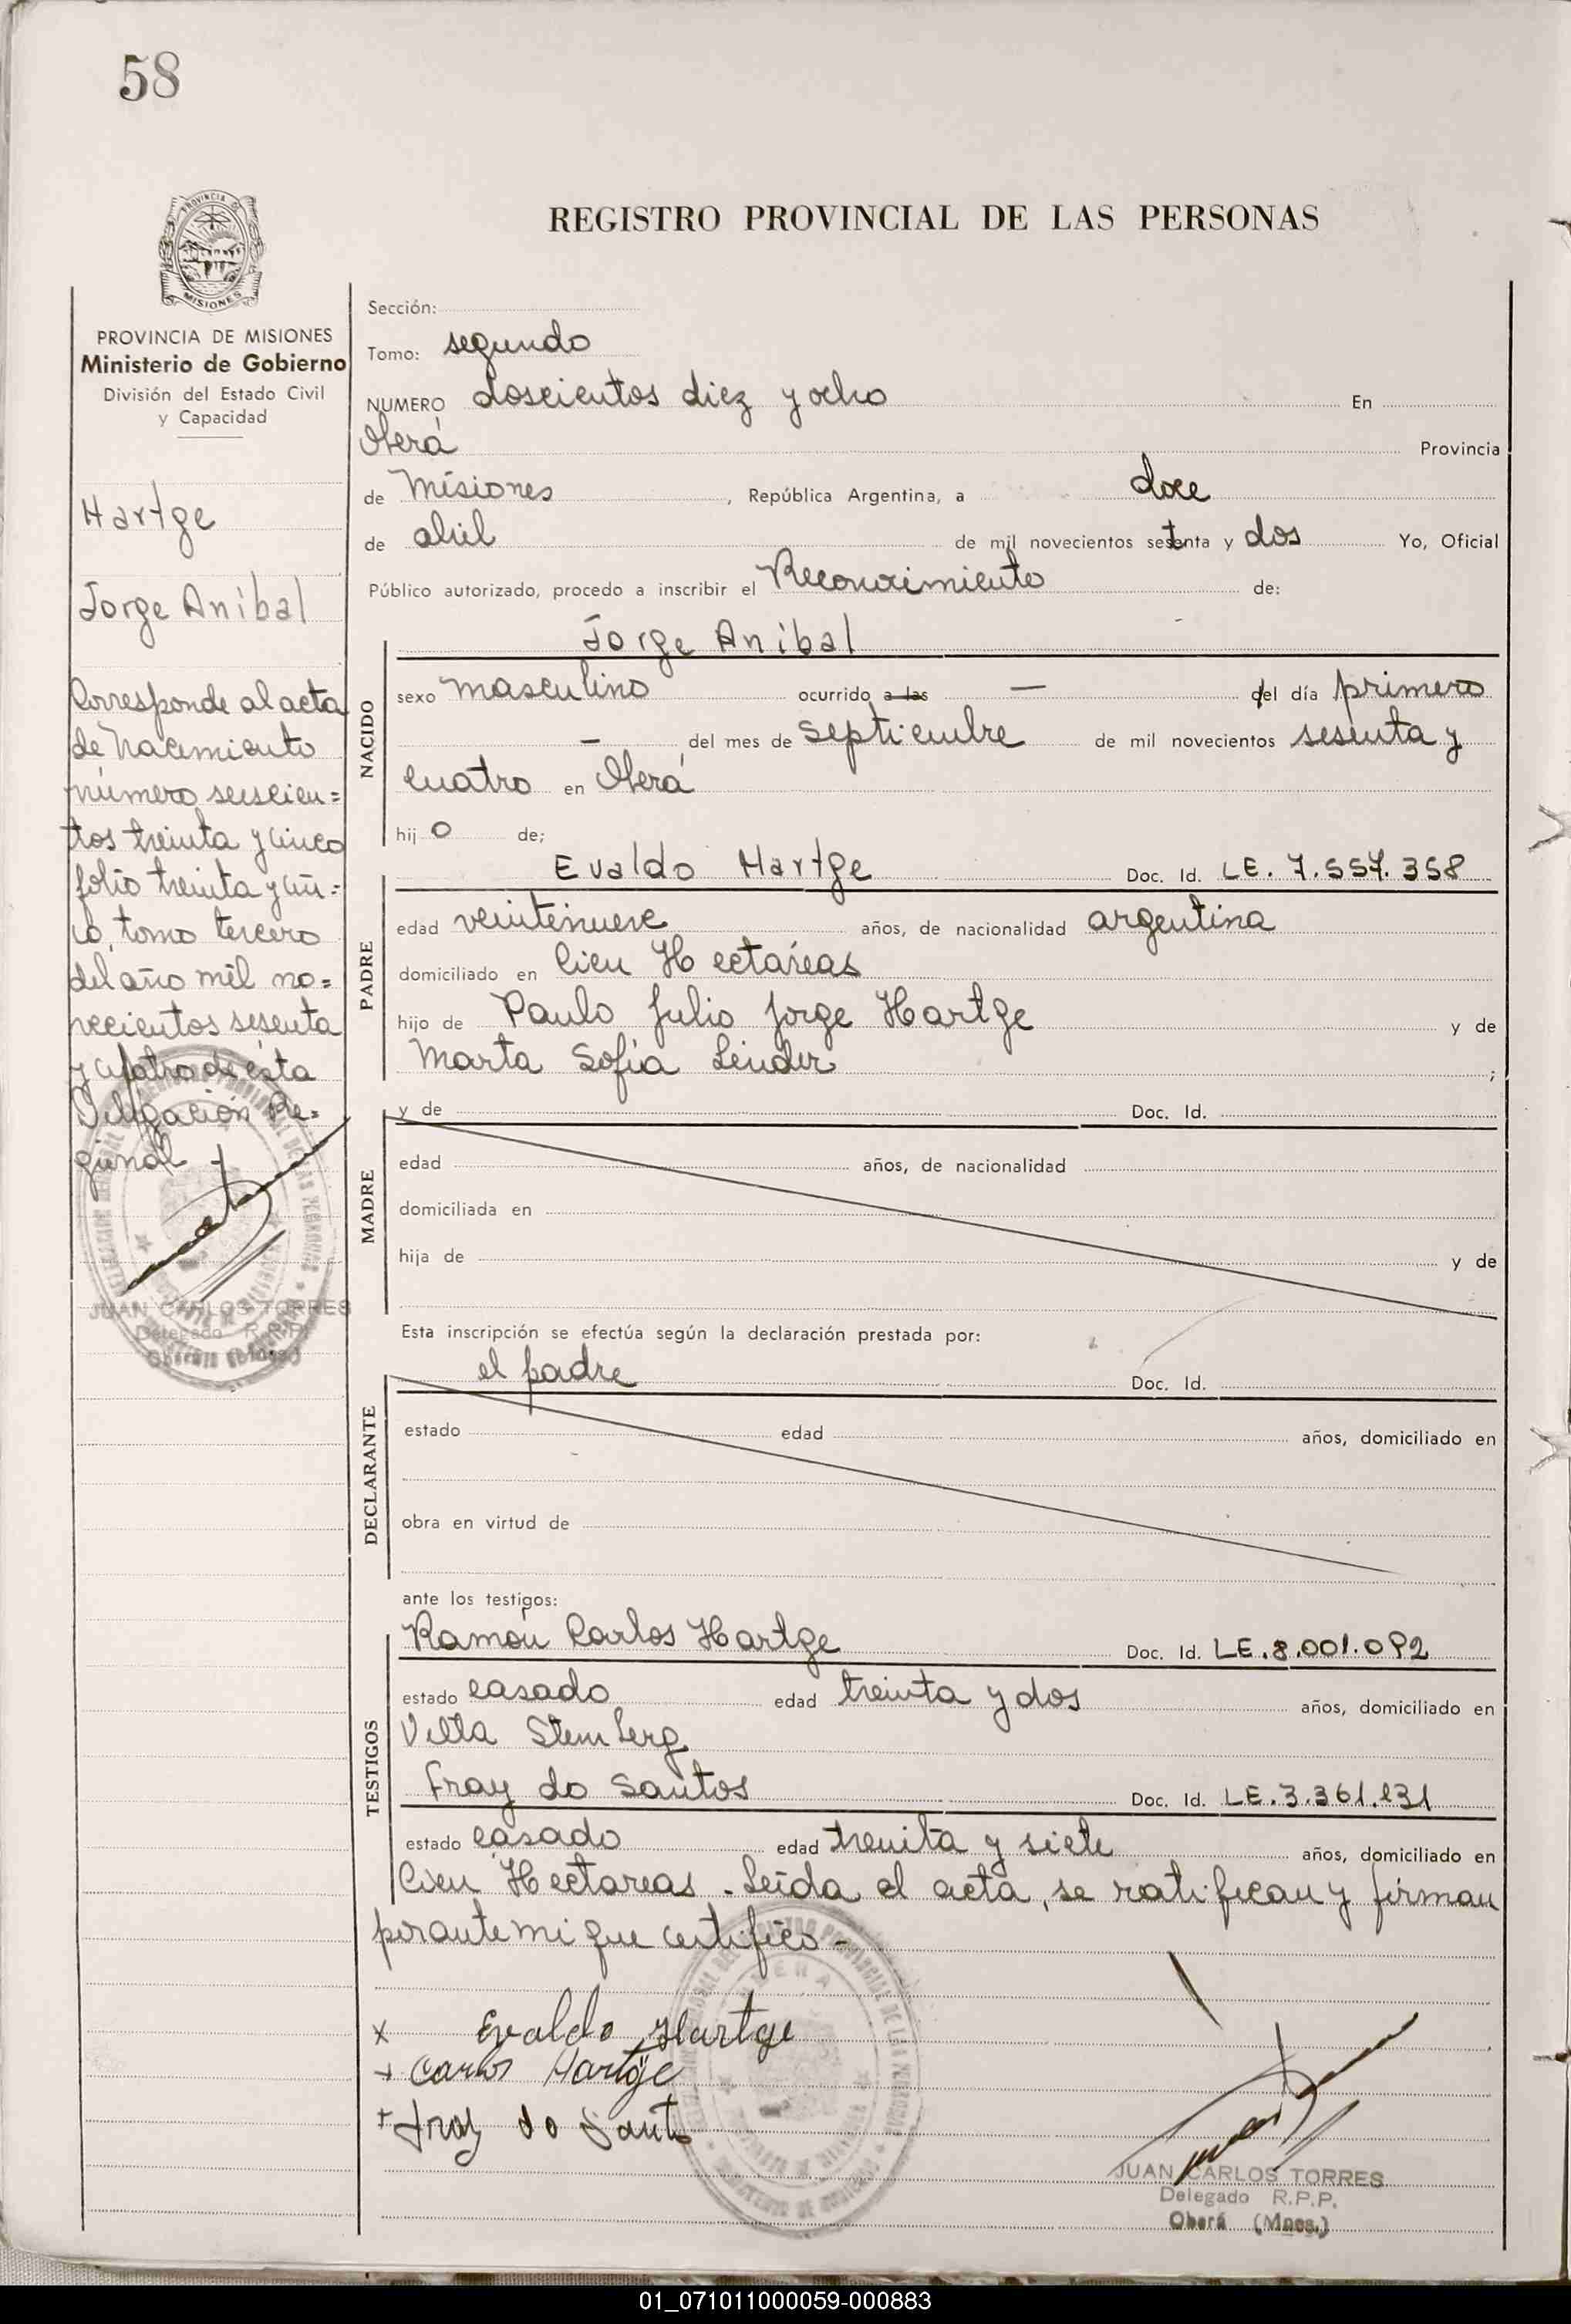 58
REGISTRO PROVINCIAL DE LAS PERSONAS
PROVINCIA DE
MISIONES
PROVINCIA DE MISIONES
Ministerio de Gobierno
División del Estado Civil
y Capacidad
Hartge
Jorge Aníbal
Corresponde al acta
de nacimiento
número seiscien=
tos treinta y cinco
folio treinta y cin=
co, tomo tercero
del año mil no=
vecientos sesenta
y cuatro de esta
Delegación Re=
gional
JUAN CARLOS TORRES
Delegado R.P.P.
Sección:
Tomo: segundo
NUMERO doscientos diez y ocho En
Oberá Provincia
de Misiones , República Argentina, a doce
de abril de mil novecientos setenta y dos Yo, Oficial
Público autorizado, procedo a inscribir el Reconocimiento de:
Jorge Aníbal
NACIDO
sexo masculino ocurrido a las — del día primero
— del mes de septiembre de mil novecientos sesenta y
cuatro en Oberá
hij o de;
Evaldo Hartge Doc. Id. LE. 7.557.358
PADRE
edad veintinueve años, de nacionalidad argentina
domiciliado en Cien Hectáreas
hijo de Paulo Julio Jorge Hartge y de
Marta Sofía Linder ;
MADRE
y de Doc. Id.
edad años, de nacionalidad
domiciliada en
hija de y de
Esta inscripción se efectúa según la declaración prestada por:
el padre Doc. Id.
DECLARANTE
estado edad años, domiciliado en
obra en virtud de
ante los testigos:
Ramón Carlos Hartge Doc. Id. LE.8.001.092
TESTIGOS
estado casado edad treinta y dos años, domiciliado en
Villa Stemberg
Fray do Santos Doc. Id. LE.3.361.131
estado casado edad treinta y siete años, domiciliado en
Cien Hectareas. Leída el acta, se ratifican y firman
por ante mi que certifico -
x Evaldo Hartge
+ Carlos Hartge
+ Fray do Santos
JUAN CARLOS TORRES
Delegado R.P.P.
Oberá (Mnes.)
01_071011000059-000883